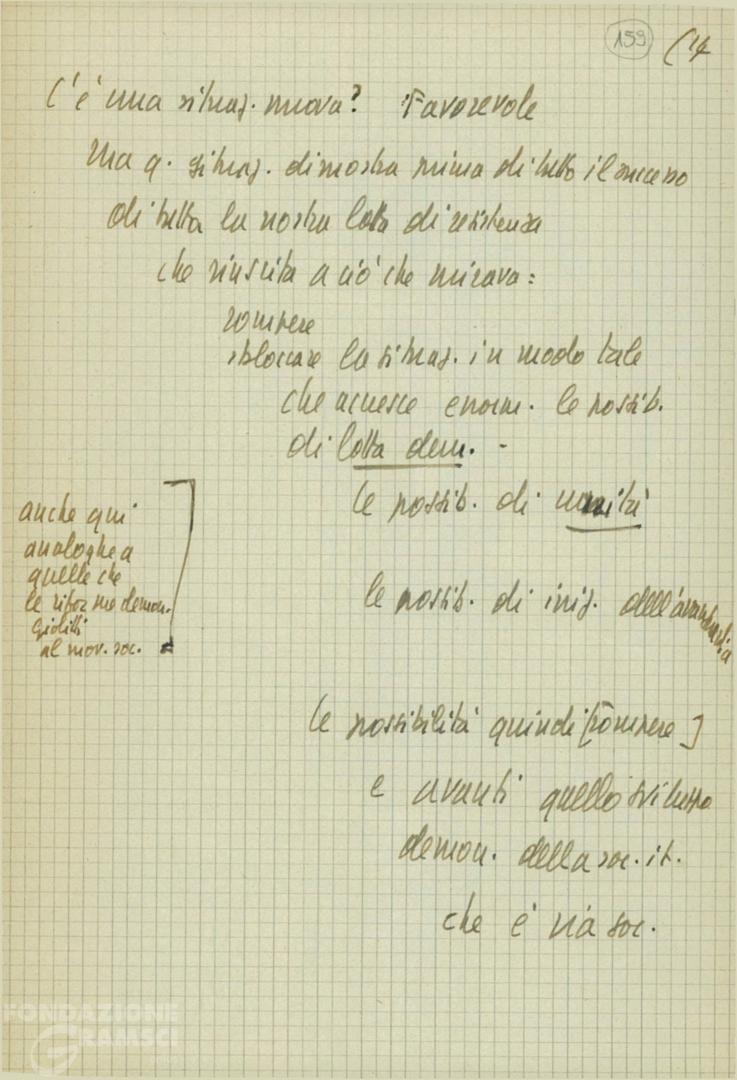 159 (14
C'è una situaz. nuova? Favorevole
Ma q. situaz. dimostra prima di tutto il successo
di tutta la nostra lotta di resistenza
che riuscita a ciò che mirava:
rompere
sbloccare la situaz. in modo tale
che accresce enorm. le possib.
di lotta dem. -
le possib. di unità
anche qui
analoghe a
quelle che
le riforme democr.
giolitti
al mov. soc.
le possib. di iniz. dell'avanguardia
le possibilità quindi [rompere]
e avanti quello sviluppo
democr. della soc. it.
che è via soc.
FONDAZIONE
GRAMSCI